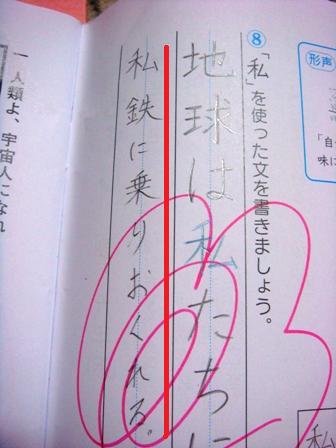 形声
「自
味に
⑧「私」を使った文を書きましょう。
地球は私たちに
私鉄に乗りおくれる。
私
一 人類よ、宇宙人になれ